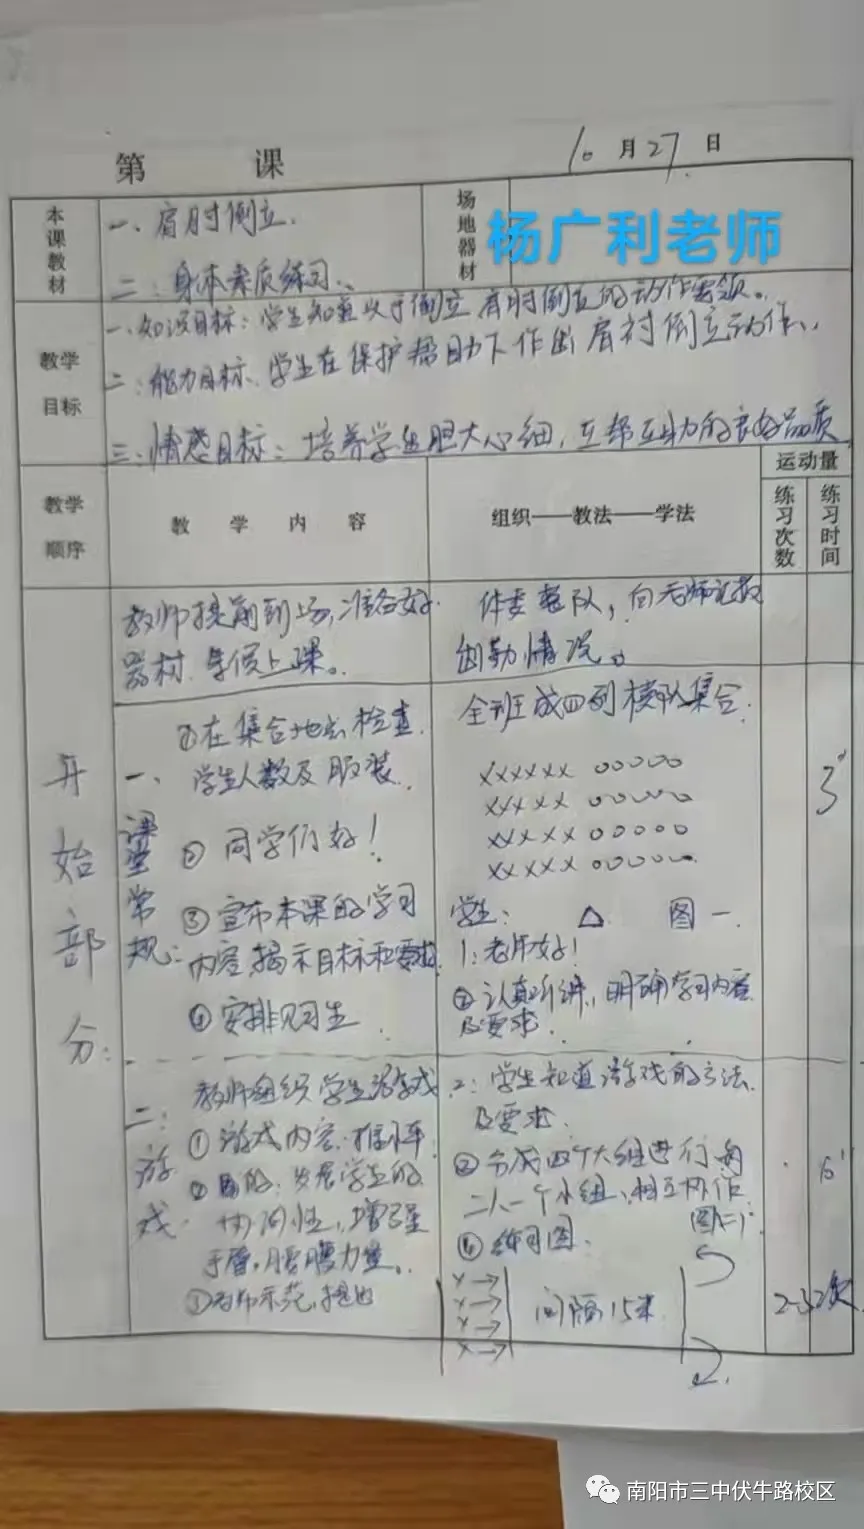 第 课
10月27日
本课教材
一、肩肘倒立.
二:身体素质练习.
场地器材
杨广利老师
教学目标
一.知识目标:学生知道 倒立 肩肘倒立的动作要领。
二:能力目标、学生在保护帮助下作出肩肘倒立动作.
三:情感目标:培养学生胆大心细,互帮互助的良好品质
教学顺序
教学内容
组织——教法——学法
运动量
练习次数
练习时间
开始部分:
教师提前到场,准备好
器材 等候上课。
体委整队,向老师汇报
出勤情况。
一、课堂常规:
①在集合地点检查
学生人数及服装.
② 同学们好!
③宣布本课的学习
内容,揭示目标和要求
④安排见习生
全班成四列横队集合.
xxxxxx ooooo
xxxxx ooooo
xxxxx ooooo
xxxxx oooooo
学生: △ 图一.
1:老师好!
②认真听讲,明确学习内容
及要求.
3'
二:游戏.
教师组织学生游戏
①游戏内容:推小车
②目的:发展学生的
协调性,增强
手臂,腰腹力量。
③老师示范,提出
2:学生知道游戏的方法
及要求.
②分成四个大组进行每
二人一个小组、相互协作
图二:
练习图:
x→
x→
x→
x→
间隔15米
6'
2-3次
南阳市三中伏牛路校区